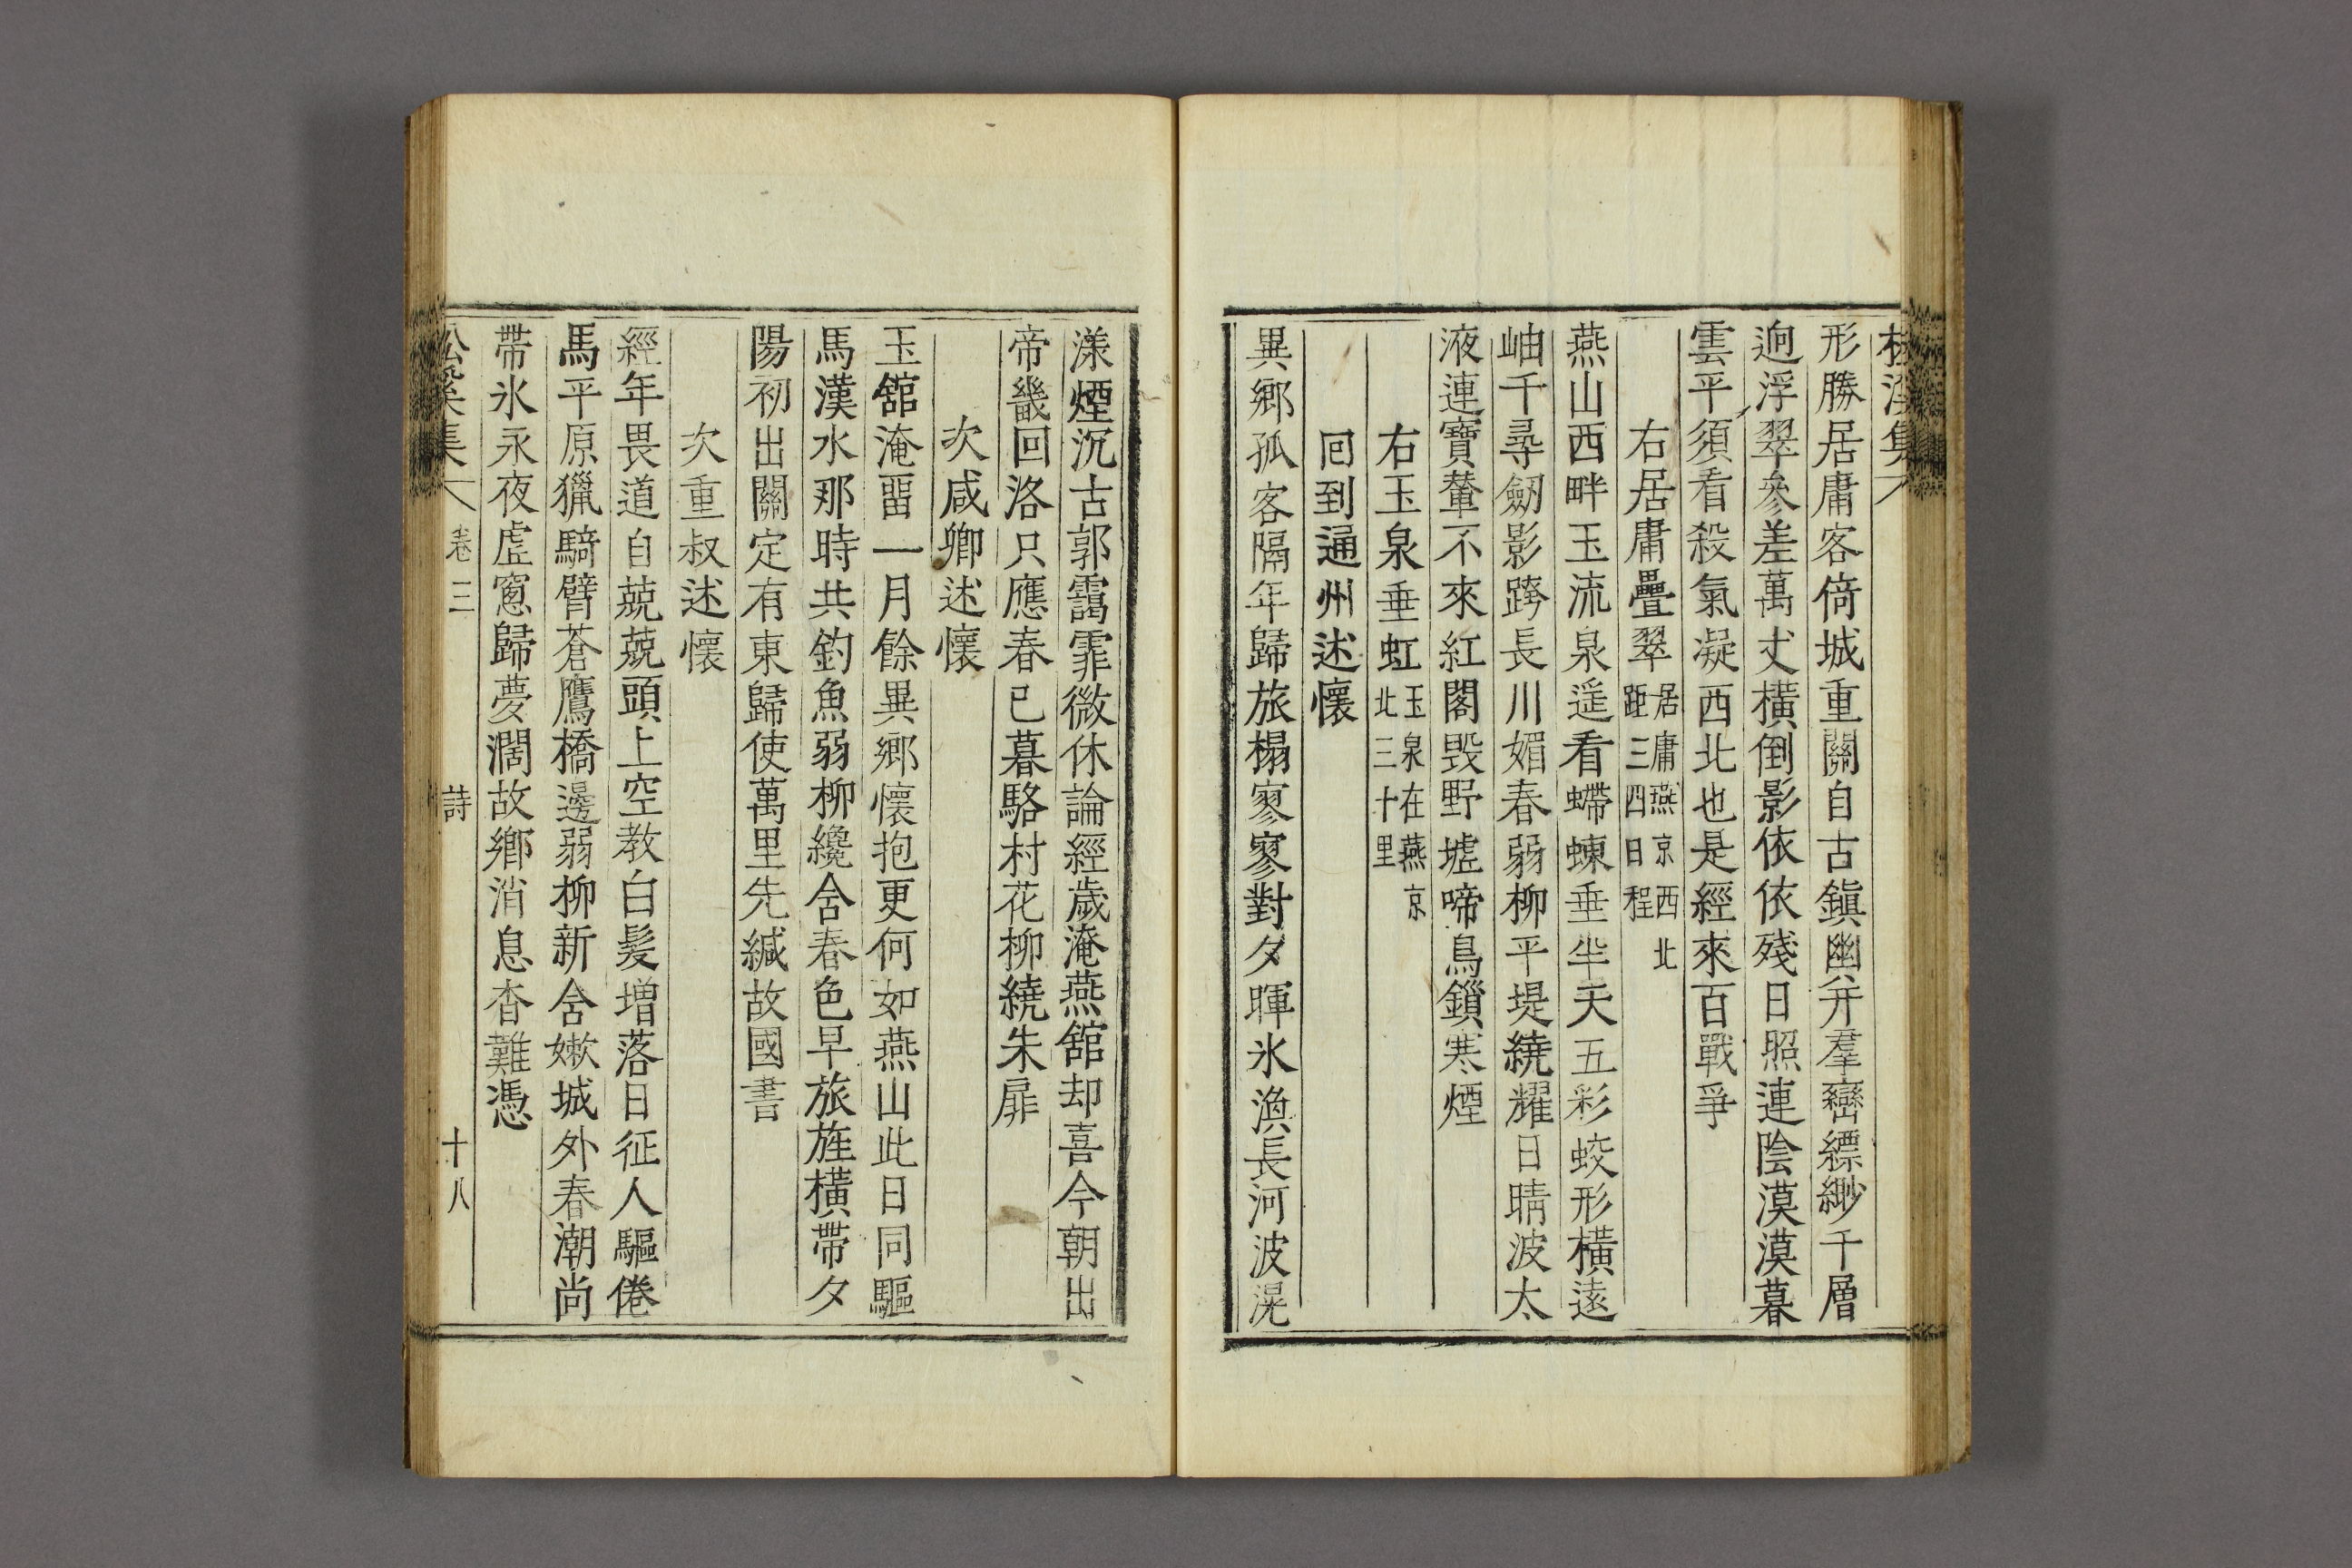 形勝居庸客倚城重關自古鎭幽幷羣巒縹緲千層
逈浮翠參差萬丈橫倒影依依殘日照連陰漠漠暮
雲平須看殺氣凝西北也是經來百戰爭
右居庸疊翠居庸燕京西北距三四日程
燕山西畔玉流泉遥看螮蝀垂半天五彩蛟形橫遠
岫千尋劒影跨長川媚春弱柳平堤繞耀日晴波太
液連寶輦不來紅閣毁野墟啼鳥鎖寒煙
右玉泉垂虹玉泉在燕京北三十里
回到通州述懷
異郷孤客隔年歸旅榻寥寥對夕暉氷漁長河波滉
漾煙沉古郭靄霏微休論經歲淹燕舘却喜今朝出
帝畿回洛只應春已暮駱村花柳繞朱扉
次咸卿述懷
玉舘淹畱一月餘異郷懷抱更何如燕山此日同驅
馬漢水那時共釣魚弱柳纔舍春色早旅旌橫帶夕
陽初出關定有東歸使萬里先緘故國書
次重叔述懷
經年畏道自兢兢頭上空教白髮增落日征人驅倦
馬平原獵騎臂蒼鷹橋邊弱柳新舍嫩城外春潮尚
帶氷永夜虛窓歸夢濶故鄉消息杳難憑
卷三 詩 十八